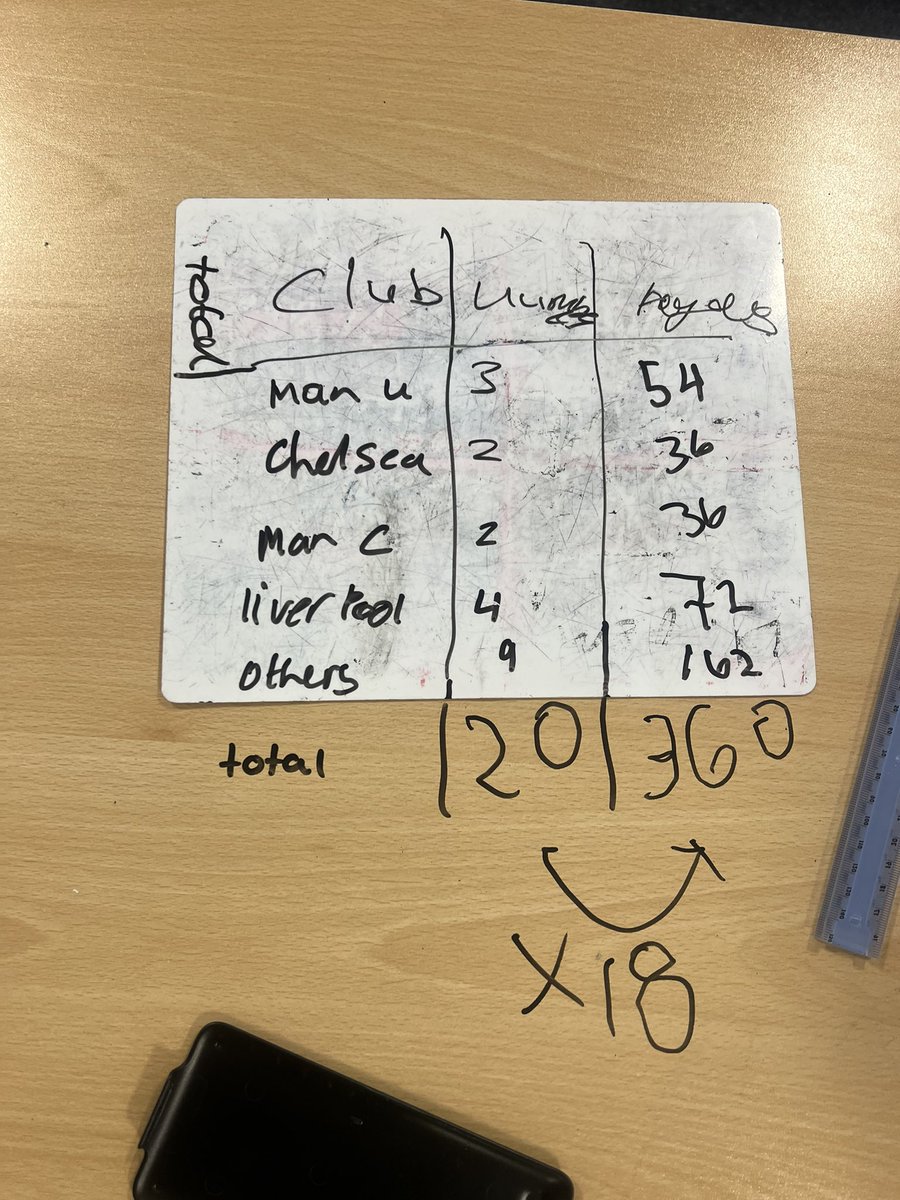 total
Club
Man u 3 54
Chelsea 2 36
Man C 2 36
liverpool 4 72
others 9 162
total 20 360
x18